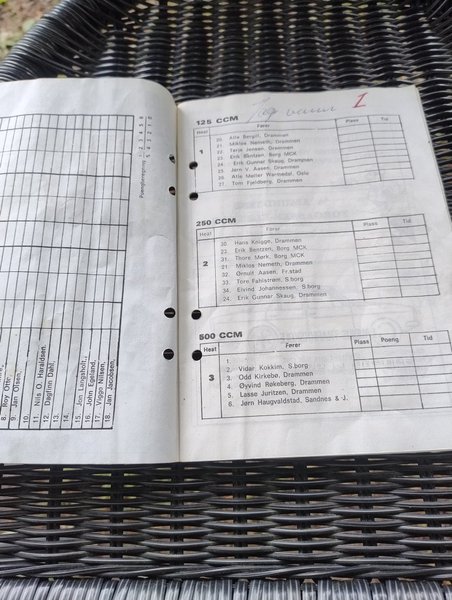 8. Roy Oth
9. Jan Olsen,
10.
11. Nils O. Haraldsen.
12. Dagfinn Dahl,
13.
14.
15. Jon Langsholt,
16. John Egeland,
17. Viggo Nilsen,
18. Jan Jacobsen,
1 2 3 4 5 6
5 4 3 2 1 0
I
125 CCM
Heat Fører Plass Tid
1
20. Atle Bergill, Drammen
21. Miklos Nemeth, Drammen
22. Terje Jensen, Drammen
23. Erik Bentzen, Borg MCK
24. Erik Gunnar Skaug, Drammen
25. Jørn V. Aasen, Drammen
26. Atle Møller Warstedal, Oslo
27. Tom Fjeldberg, Drammen
250 CCM
Heat Fører Plass Tid
2
30. Hans Knigge, Drammen
23. Erik Bentzen, Borg MCK
31. Thore Mørk, Borg MCK
21. Miklos Nemeth, Drammen
32. Ørnulf Aasen, Fr.stad
33. Tore Fahlstrøm, S.borg
34. Eivind Johannessen, S.borg
24. Erik Gunnar Skaug, Drammen
500 CCM
Heat Fører Plass Poeng Tid
3
1.
2. Vidar Kokkim, S.borg
3. Odd Kirkebø, Drammen
4. Øyvind Røkeberg, Drammen
5. Lasse Juritzen, Drammen
6. Jørn Haugvaldstad, Sandnes & J.